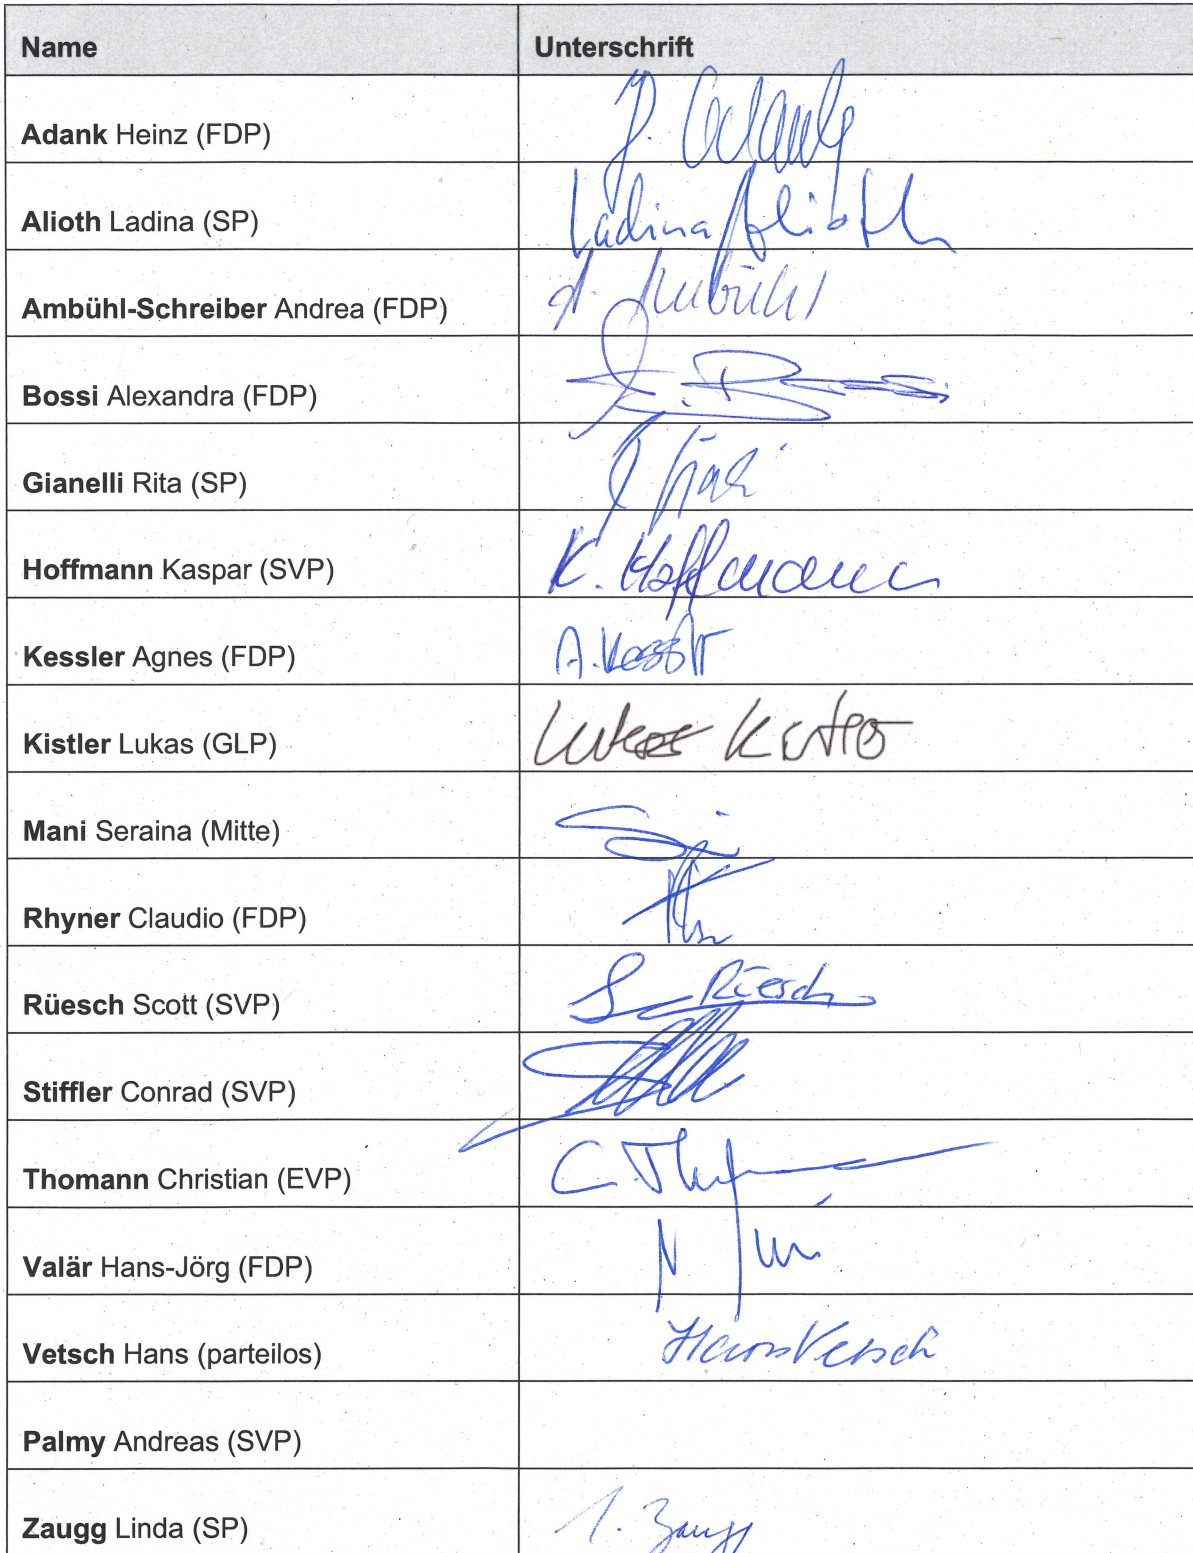 Name Unterschrift
Adank Heinz (FDP)
Alioth Ladina (SP) Ladina Alioth
Ambühl-Schreiber Andrea (FDP) A. Ambühl
Bossi Alexandra (FDP)
Gianelli Rita (SP)
Hoffmann Kaspar (SVP) K. Hoffmann
Kessler Agnes (FDP) A. Kessler
Kistler Lukas (GLP) Lukas Kistler
Mani Seraina (Mitte)
Rhyner Claudio (FDP)
Rüesch Scott (SVP) S. Rüesch
Stiffler Conrad (SVP)
Thomann Christian (EVP)
Valär Hans-Jörg (FDP)
Vetsch Hans (parteilos) Hans Vetsch
Palmy Andreas (SVP)
Zaugg Linda (SP) l. Zaugg